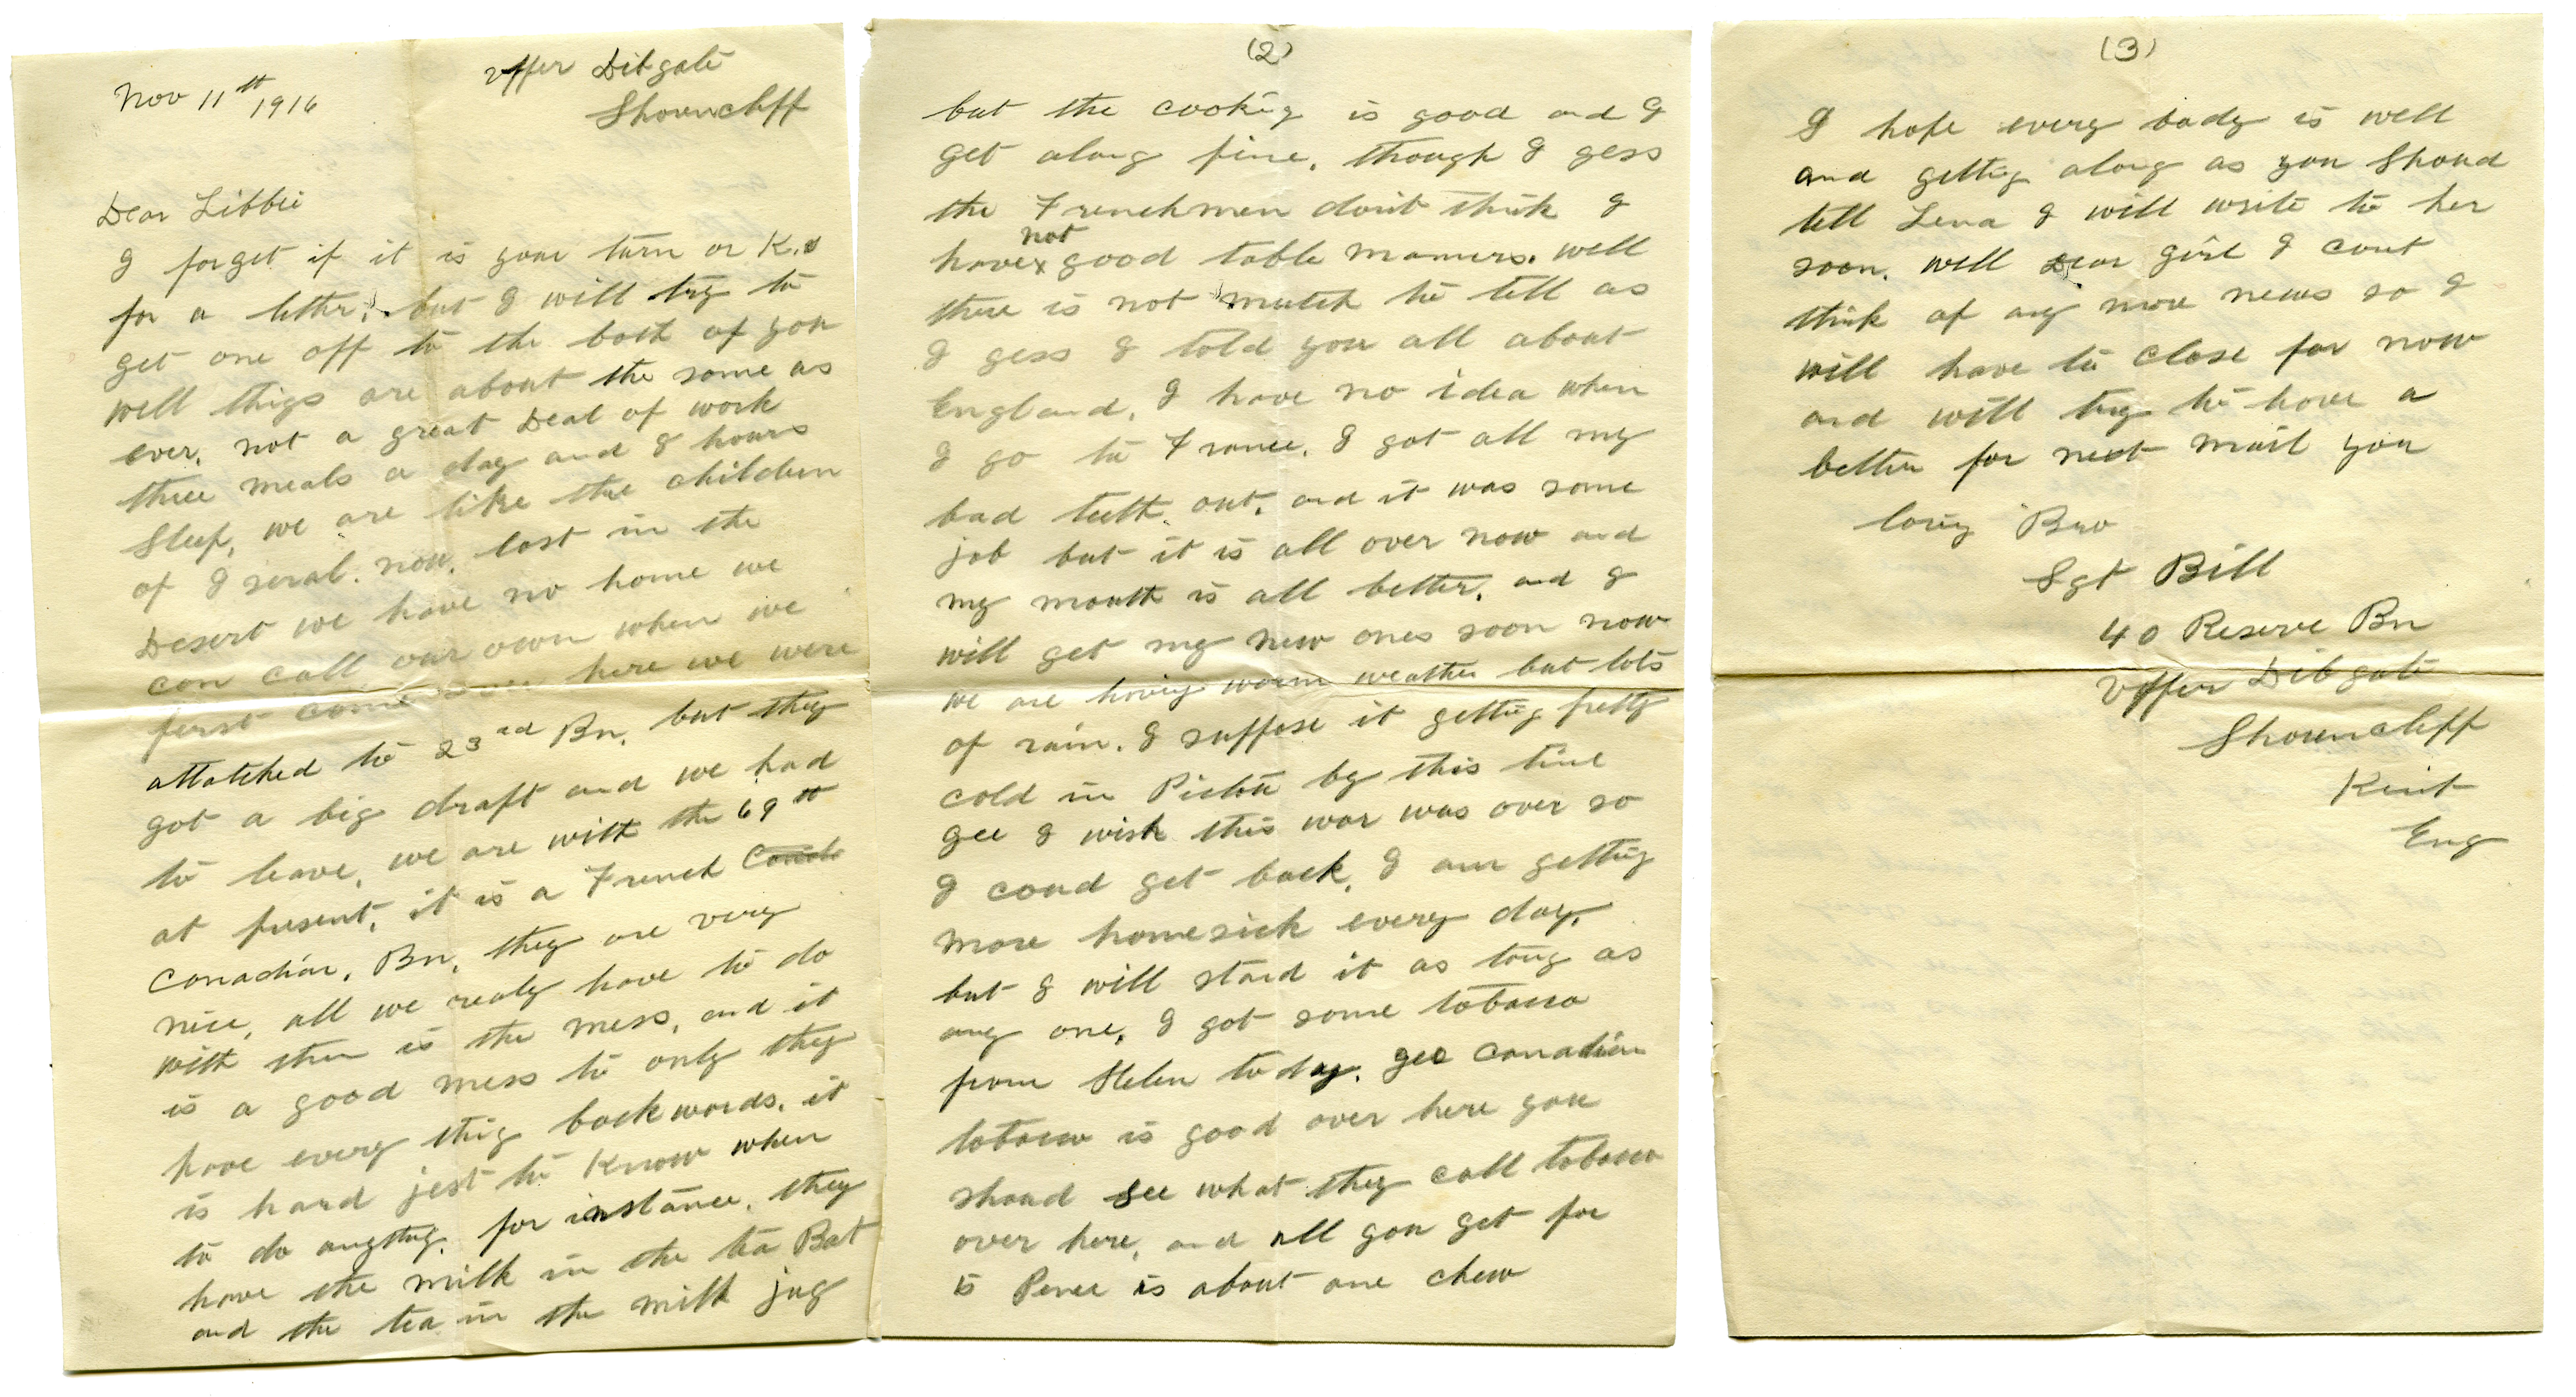 Nov 11th 1916
Upper Dibgate
Shorncliff
Dear Libbie
I forget if it is your turn or K.s
for a letter, but I will try to
get one off to the both of you
well things are about the same as
ever, not a great Deal of work
three meals a day and 8 hours
Sleep, we are like the children
of Iseral. now. lost in the
Desert we have no home we
can call our own when we
first come over here we were
attatched to 23rd Bn. but they
got a big draft and we had
to leave, we are with the 69th
at present, it is a French
Canadian, Bn, they are very
nice, all we realy have to do
with them is the mess, and it
is a good mess to only they
have every thig backwards, it
is hard jest to Know when
to do anythig. for instance, they
have the milk in the tea Pot
and the tea in the milk jug
(2)
but the cookig is good and I
get along fine, though I gess
the Frenchmen don't think I
have not good table manners. well
there is not mutch to tell as
I gess I told you all about
England, I have no idea when
I go to France. I got all my
bad teeth out, and it was some
job but it is all over now and
my mouth is all better, and I
will get my new ones soon now
we are having warm weather but lots
of rain. I suppose it getting pretty
cold in Pictou by this time
gee I wish this war was over so
I coud get back, I am getting
more homesick every day,
but I will stand it as long as
any one, I got some tobacco
from Helen today. gee Canadian
tobacco is good over here you
shoud see what they call tobacco
over here, and all you get for
5 Pence is about one chew
(3)
I hope every body is well
and getting along as you Shoud
tell Lena I will write to her
soon. well Dear girl I cant
think of any more news so I
will have to close for now
and will try to have a
better for next mail you
lovig Bro
Sgt Bill
40 Reserve Bn
Upper Dibgate
Shorncliff
Kent
Eng